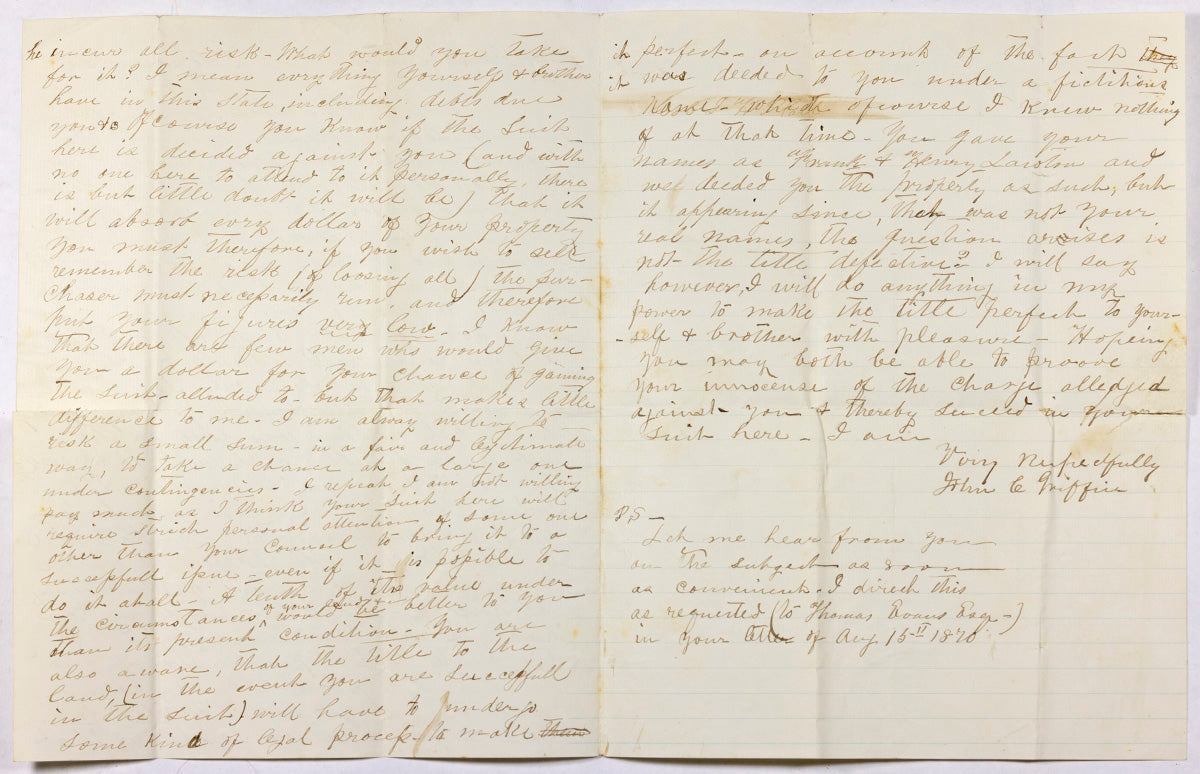 he incur all risk - What would you take
for it? I mean evrything yourself & brother
have in this State, including debts due
you &c Ofcourse you know if the Suit
here is decided against you (and with
no one here to attend to it personally, there
is but little doubt it will be) that it
will absorb evry dollar of your property
You must therefore, if you wish to sell
remember the risk (of loosing all) the pur-
chaser must necessarily run, and therefore
put your figures very low - I know
that there are few men who would give
you a dollar for your chance of gaining
the suit - alluded to - but that makes little
difference to me - I am alway willing to
risk a small sum - in a fair and legitimate
way, to take a chance at a large one
under contingencies - I repeat I am not willing
pay much, as I think your Suit here will
require strict personal attention of some one
other than your Councel to bring it to a
successfull issue - even if it is possible to
do it atall - A tenth of its value under
the circumstances, of your would be better to you
than its present condition - You are
also aware, that the title to the
land, (in the event you are successfull
in the suit) will have to undergo
some kind of legal process to make them
it perfect - on account of the fact they
it was deeded to you under a fictitious
name - which ofcourse I knew nothing
of at that time - You gave your
names as Frank & Henry Lawton and
we deeded you the property as such, but
it appearing since, that was not your
real names, the question arises is
not the title defective? I will say
however, I will do anything in my
power to make the title perfect to your-
-self & brother with pleasure - Hoping
you may both be able to proove
your innocense of the charge alledged
against you & thereby succeed in your
suit here - I am
Very Respectfully
John C Griffin
P.S -
Let me hear from you
on the subject as soon
as convenient - I direct this
as requested (to Thomas Evans Esqr -)
in your letter of Aug 15th 1870